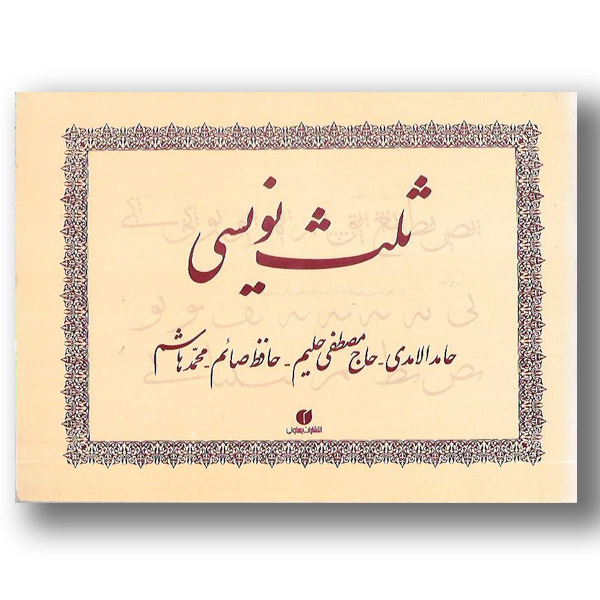 ثلث نویسی
حامد الامدی - حاج مصطفی حلیم - حافظ صائم - محمد هاشم
انتشارات یساولی